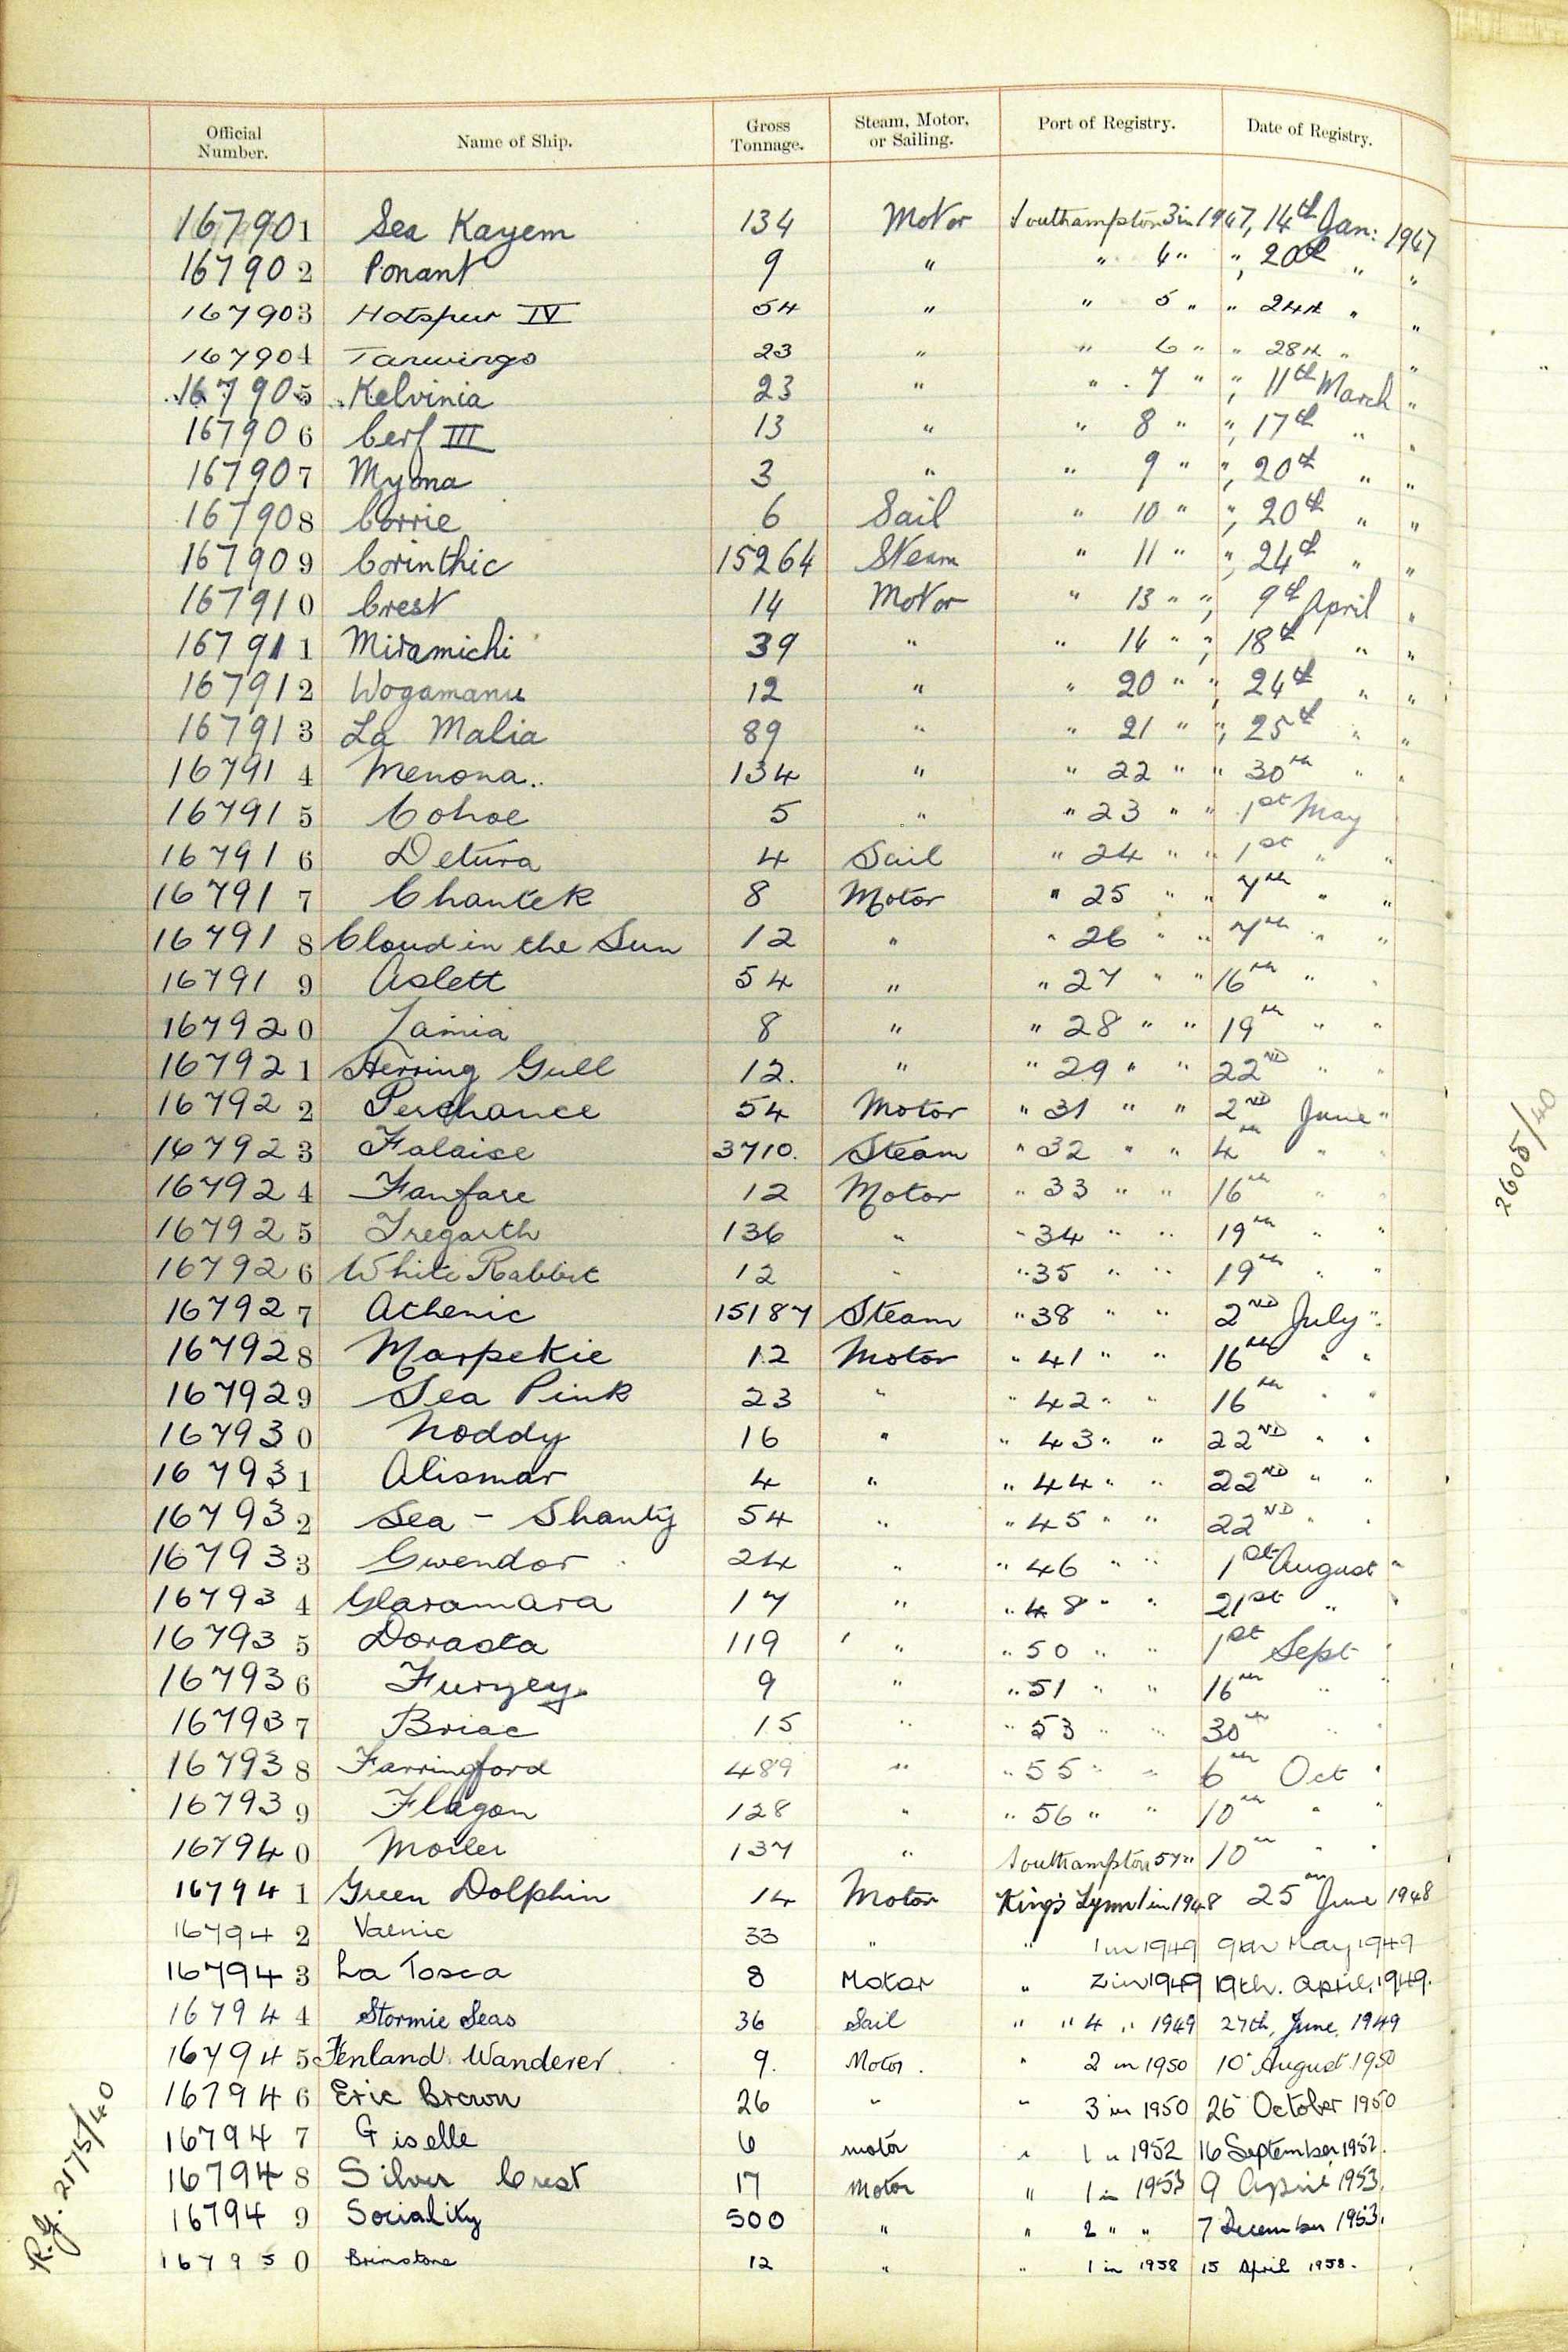 Official Number. Name of Ship. Gross Tonnage. Steam, Motor, or Sailing. Port of Registry. Date of Registry.
167901 Sea Kayem 134 Motor Southampton 3 in 1947, 14th Jan: 1947
167902 Ponant 9 " " 4 " ", 20th " "
167903 Hotspur IV 54 " " 5 " " 24th " "
167904 Tarwingo 23 " " 6 " " 28th " "
167905 Kelvinia 23 " " 7 " ", 11th March "
167906 Cerf III 13 " " 8 " ", 17th " "
167907 Myona 3 " " 9 " ", 20th " "
167908 Corrie 6 Sail " 10 " ", 20th " "
167909 Corinthic 15264 Steam " 11 " ", 24th " "
167910 Crest 14 Motor " 13 " ", 9th April "
167911 Miramichi 39 " " 16 " ", 18th " "
167912 Wogamanu 12 " " 20 " ", 24th " "
167913 La Malia 89 " " 21 " ", 25th " "
167914 Menona.. 134 " " 22 " " 30th " "
167915 Cohoe 5 " " 23 " " 1st May
167916 Detura 4 Sail " 24 " " 1st " "
167917 Chantek 8 Motor " 25 " " 7th " "
167918 Cloud in the Sun 12 " " 26 " " 7th " "
167919 Aslett 54 " " 27 " " 16th " "
167920 Lamia 8 " " 28 " " 19th " "
167921 Herring Gull 12. " " 29 " " 22ND " "
167922 Perchance 54 Motor " 31 " " 2ND June "
167923 Falaise 3710. Steam " 32 " " 4th " "
167924 Fanfare 12 Motor " 33 " " 16th " "
167925 Tregarth 136 " " 34 " " 19th " "
167926 White Rabbit 12 " " 35 " " 19th " "
167927 Athenic 15187 Steam " 38 " " 2ND July "
167928 Marpekie 12 Motor " 41 " " 16th " "
167929 Sea Pink 23 " " 42 " " 16th " "
167930 Noddy 16 " " 43 " " 22ND " "
167931 Alismar 4 " " 44 " " 22ND " "
167932 Sea - Shanty 54 " " 45 " " 22ND " "
167933 Gwendor 24 " " 46 " " 1st August "
167934 Glaramara 17 " " 48 " " 21st " "
167935 Dorasta 119 " " 50 " " 1st Sept "
167936 Furzey. 9 " " 51 " " 16th " "
167937 Briac 15 " " 53 " " 30th " "
167938 Farringford 489 " " 55 " " 6th Oct "
167939 Flagon 128 " " 56 " " 10th " "
167940 137 " Southampton 57 " 10th " "
167941 Green Dolphin 14 Motor King's Lynn 1 in 1948 25th June 1948
167942 33 " " 1 in 1949 9th May 1949
167943 La Tosca 8 Motor " 2 in 1949 19th. April, 1949.
167944 Stormie Seas 36 Sail " " 4 " 1949 27th, June, 1949
167945 Fenland Wanderer 9. Motor. " 2 in 1950 10 August 1950
167946 Eric Brown 26 " " 3 in 1950 26 October 1950
167947 Giselle 6 motor " 1 " 1952 16 September 1952.
167948 Silver Crest 17 Motor " 1 in 1953 9 April 1953.
167949 Sociality 500 " " 2 " " 7 December 1953.
167950 Brimstone 12 " " 1 in 1958 15 April 1958.
R.G. 2175/40
2605/40